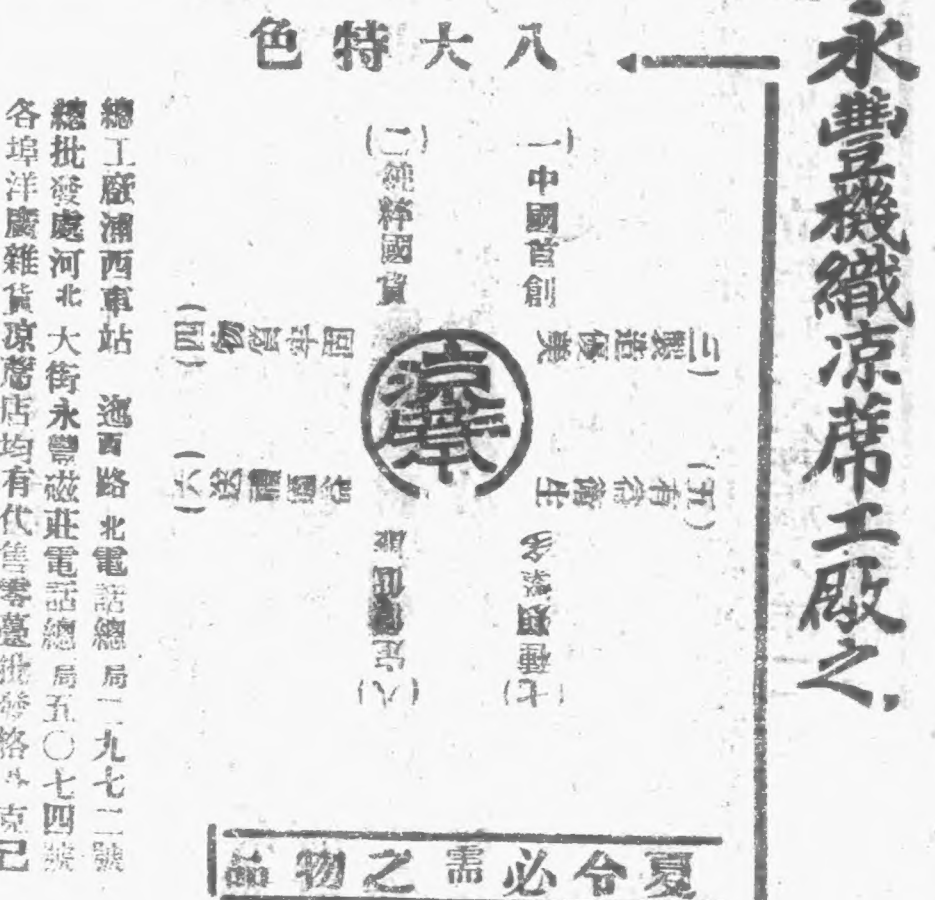 永豐機織凉蓆工厰之
八大特色
(一)中國首創
(二)純粹國貨
(三)製造優美
(四)物質牢固
(五)有符衛生
(六)
(七)種類繁多
(八)定價低廉
凉蓆
夏令必需之物品
總工廠浦西車站 迤西路北電話總局二九七二號
總批發處河北大街永豐磁莊電話總局五〇七四號
各埠洋廣雜貨凉蓆店均有代售零躉批發格外克己